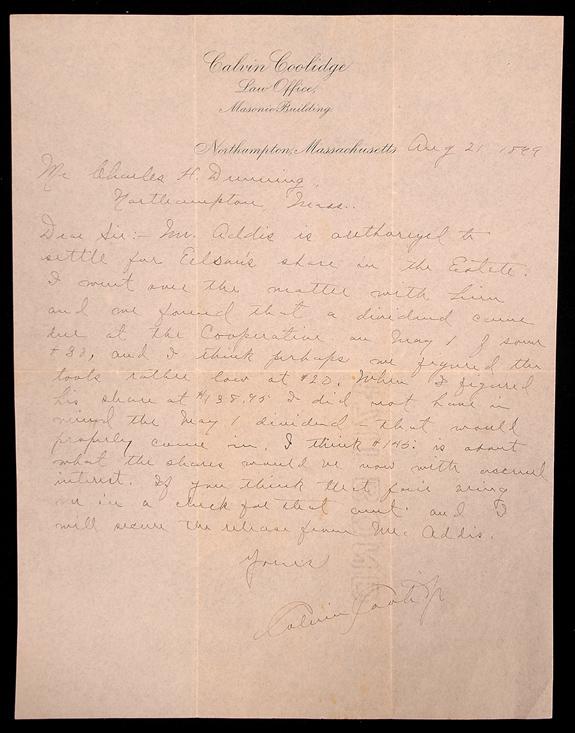 Calvin Coolidge
Law Office,
Masonic Building
Northampton, Massachusetts Aug 21 1899
Mr Charles H. Dunning,
Northampton Mass.
Dear Sir:- Mr. Addis is authorized to
settle for share in the Estate.
I went over the matter with him
and we found that a dividend came
due at the Cooperative on May 1 of some
$30, and I think perhaps we figured the
tools rather low at $20. When I figured
his share at $138.45 I did not have in
mind the May 1 dividend - that would
properly come in. I think $145. is about
what the shares would be now with accrued
interest. If you think that fair bring
me in a check for that amt. and I
will secure the release from Mr. Addis.
Yours
Calvin Coolidge